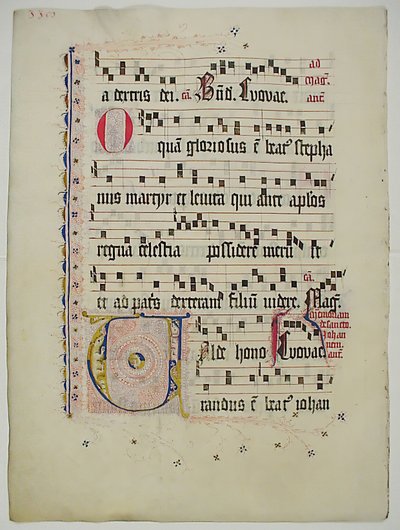 a dextris dei. ca. Bñd. Evovae. ad
mag̃.
añt.
O quã gloriosus ẽ beat᷒ stepha
nus martyr et levita qui ante apl̃os
regna celestia possidere meru it
et ad patris dexteram filiũ videre. Mag̃.
Valde hono Evovae
randus ẽ beat᷒ iohan